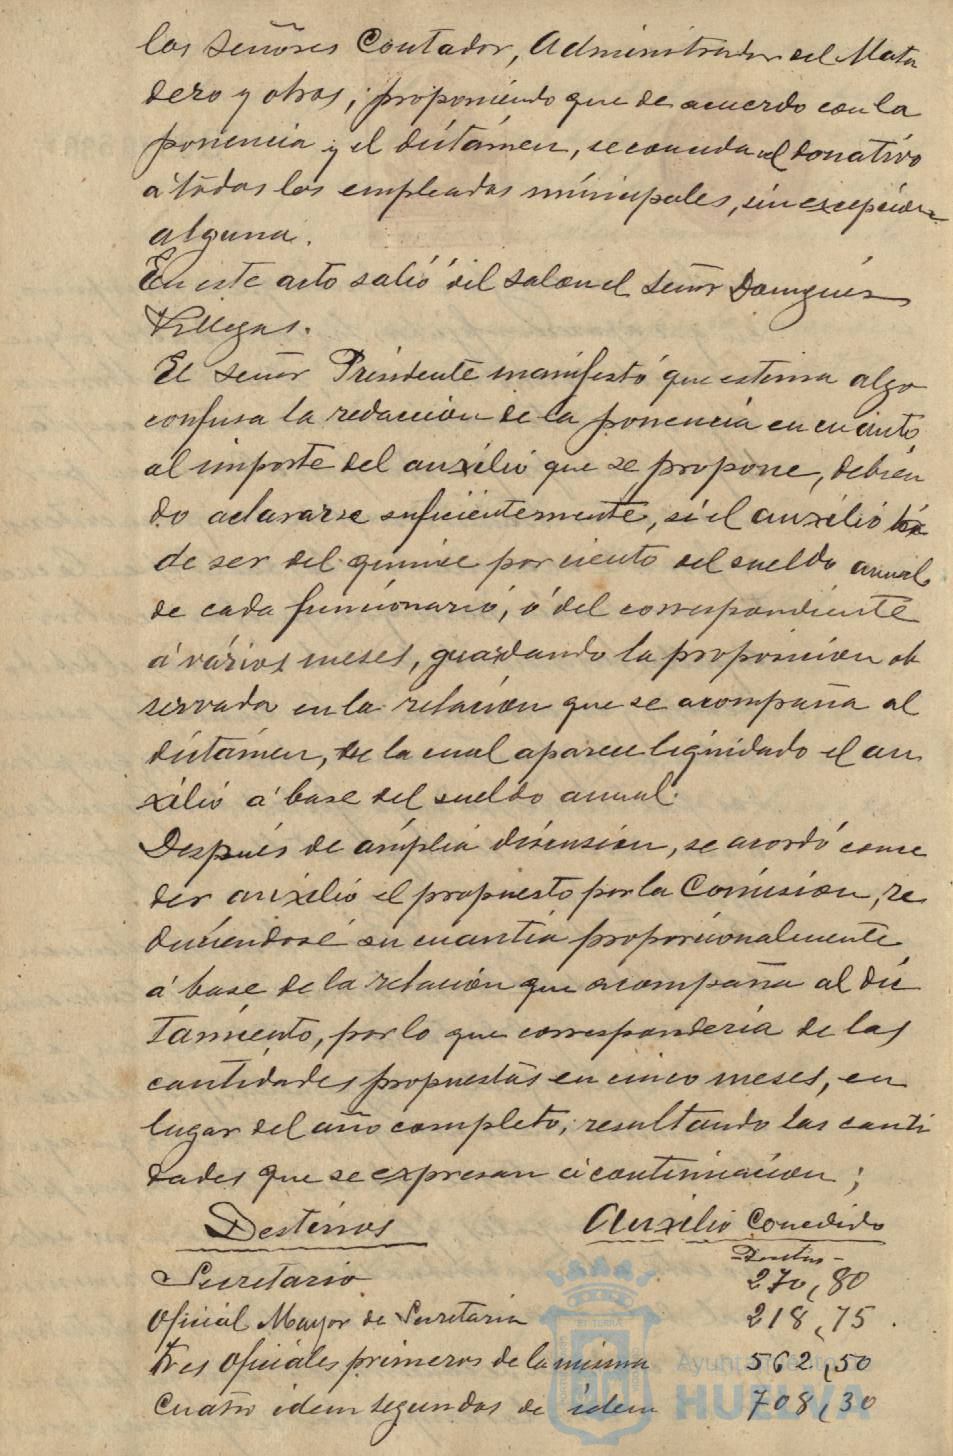 los Señores Contador, Administrador del Mata
dero y otros; proponiendo que de acuerdo con la
ponencia y el dictámen, se conceda el donativo
á todos los empleados municipales, sin excepción
alguna.
En este acto salió del salon el Señor Domínguez
Villegas.
El Señor Presidente manifestó que estima algo
confusa la redaccion de la ponencia en cuanto
al importe del auxilio que se propone, debien
do aclararse suficientemente, si el auxilio ha
de ser del quince por ciento del sueldo anual
de cada funcionario, ó del correspondiente
á varios meses, guardando la proporcion ob
servada en la relacion que se acompaña al
dictámen, de la cual aparece liquidado el au
xilio á base del sueldo anual.
Después de ámplia discusion, se acordó conce
der auxilio el propuesto por la Comision, re
duciendose su cuantia proporcionalmente
á base de la relacion que acompaña al dic
tamiento, por lo que corresponderia de las
cantidades propuestas en cinco meses, en
lugar del año completo; resultando las canti
dades que se expresan á continuacion;
Destinos Auxilio Concedido
Pesetas
Secretario 270,80
Oficial Mayor de Secretaria 218,75.
Tres Oficiales primeros de la misma 562,50
Cuatro idem segundos de idem 708,30
Ayuntamiento
HUELVA